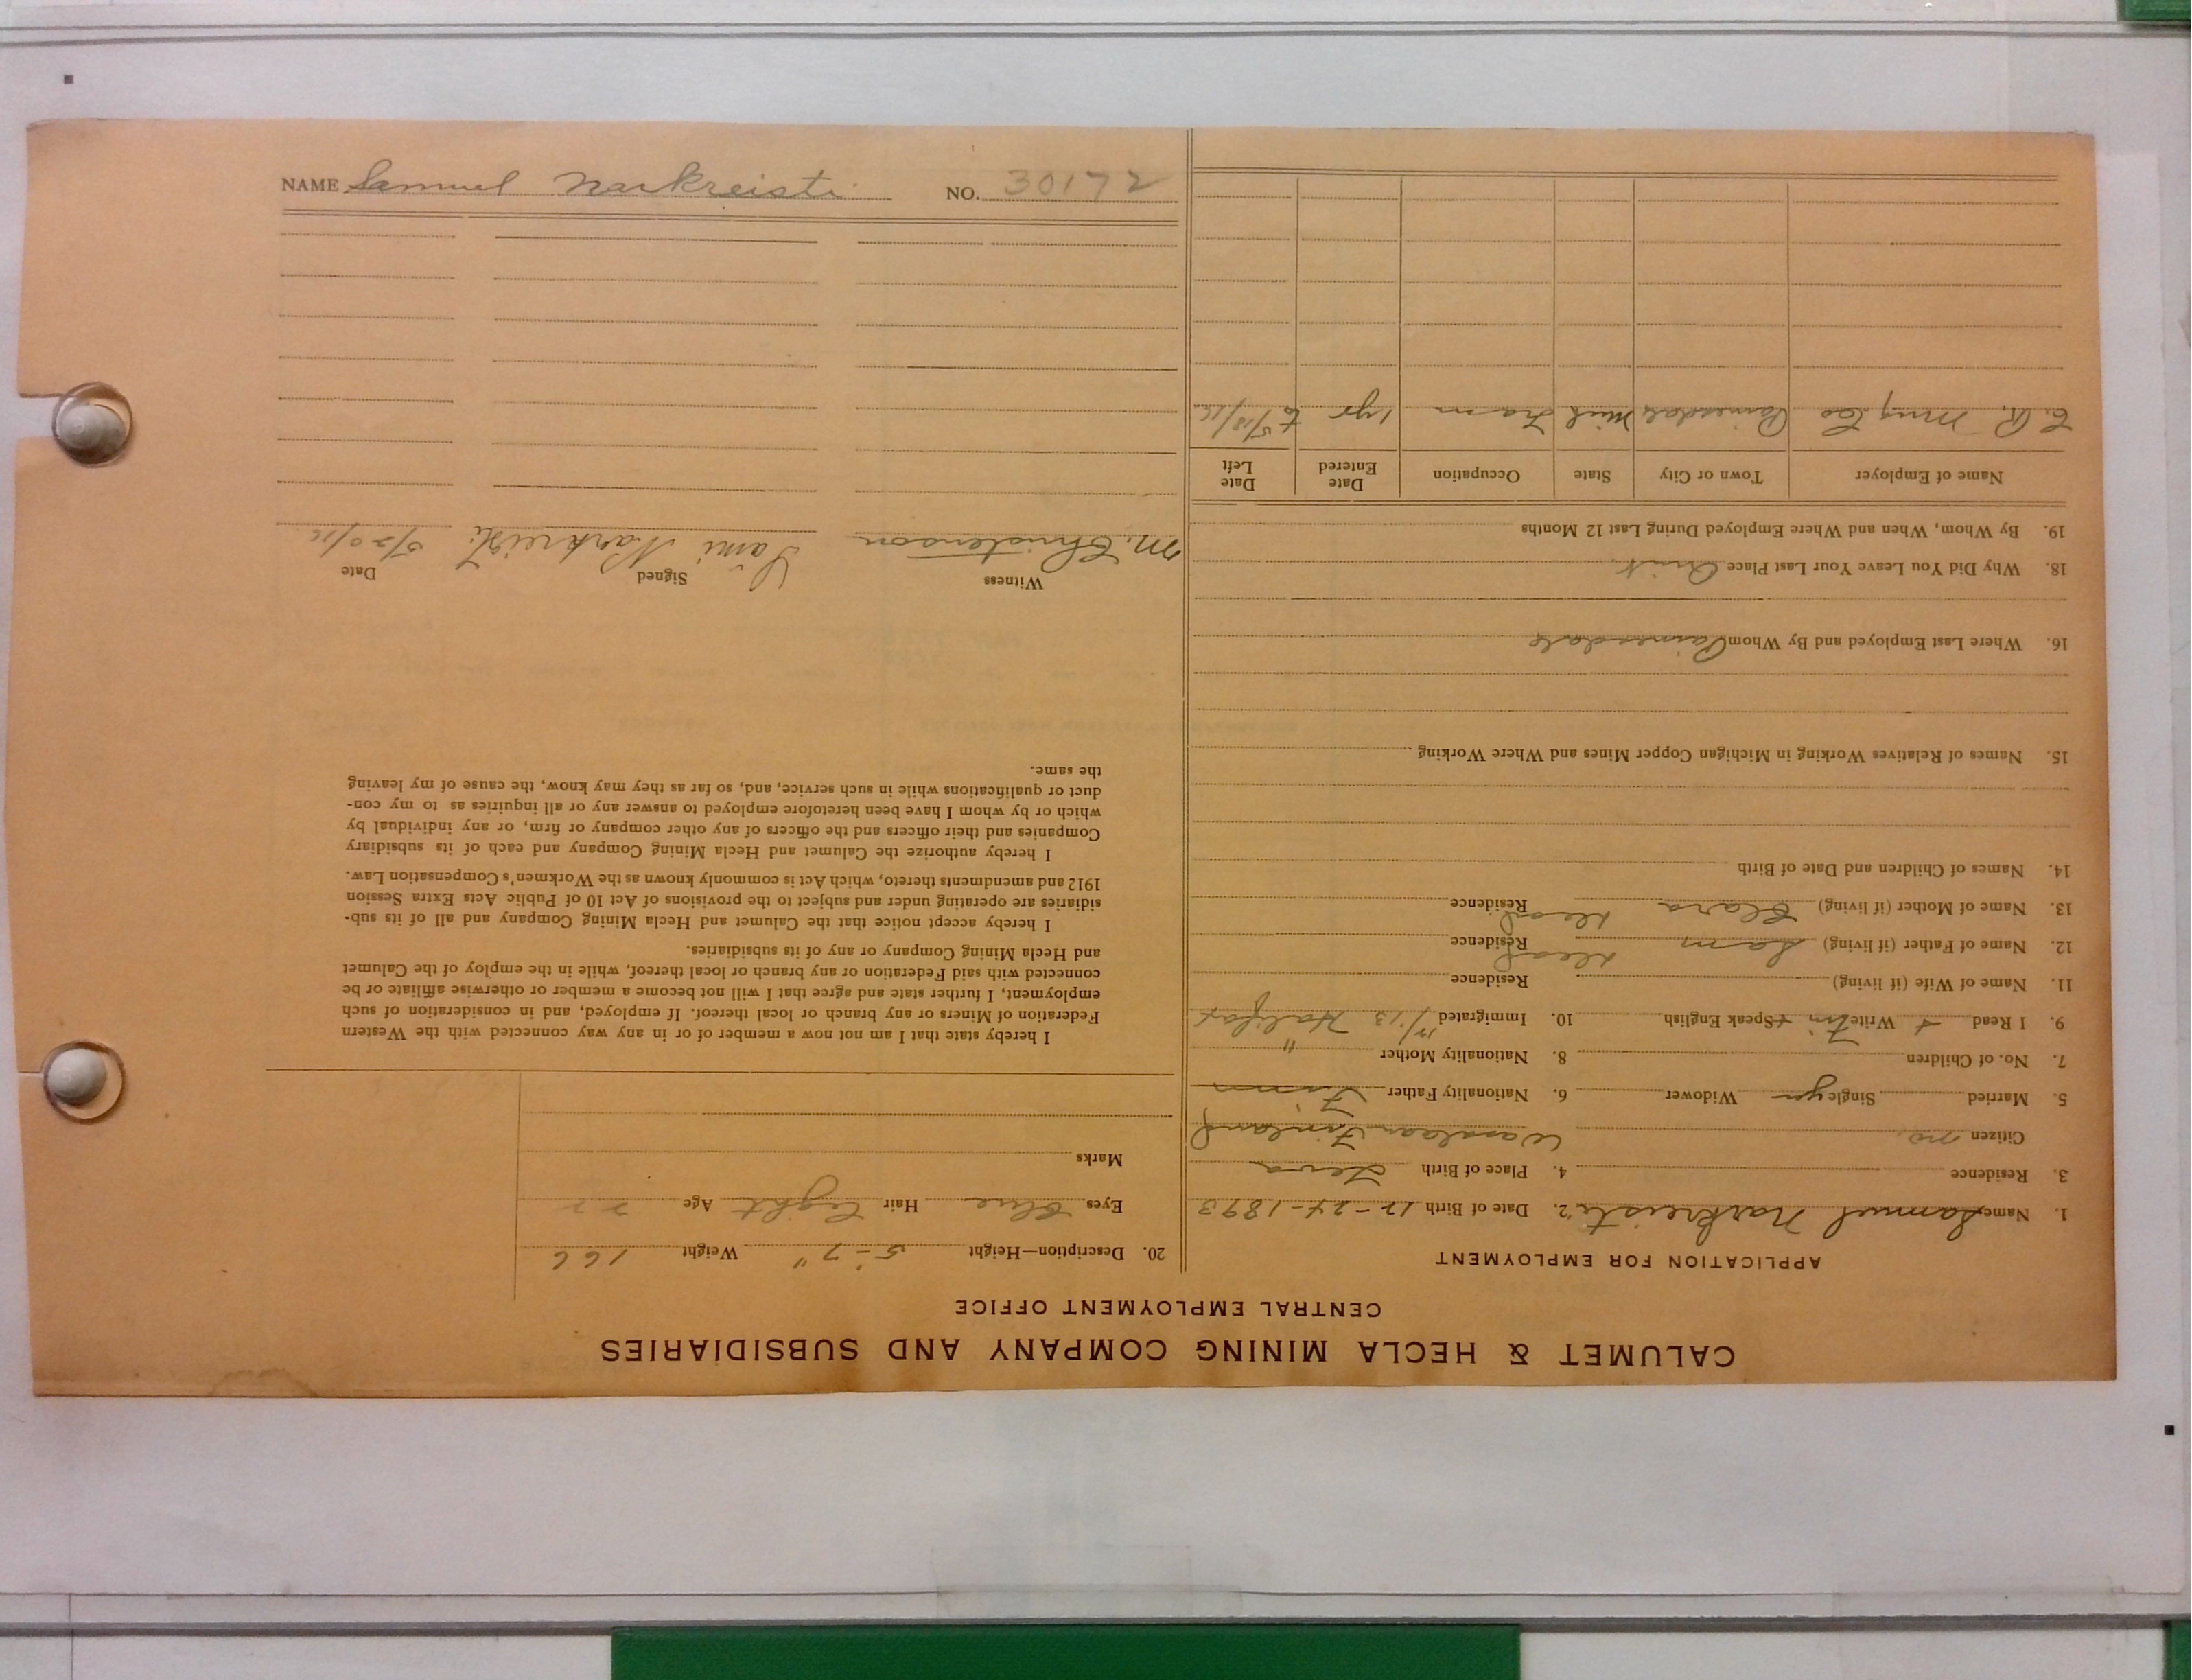 NAME Samuel Narkreisti NO. 30172
CALUMET & HECLA MINING COMPANY AND SUBSIDIARIES
CENTRAL EMPLOYMENT OFFICE
APPLICATION FOR EMPLOYMENT
1. Name Samuel Narkreisti 2. Date of Birth 12-24-1893
3. Residence 4. Place of Birth
Citizen no. Finland
5. Married Single yes Widower 6. Nationality Father Finn
7. No. of Children 8. Nationality Mother "
9. I Read + Write Fin + Speak English 10. Immigrated /13 Halifax
11. Name of Wife (if living) Residence
12. Name of Father (if living) Sam Residence Dead
13. Name of Mother (if living) Clara Residence Dead
14. Names of Children and Date of Birth
15. Names of Relatives Working in Michigan Copper Mines and Where Working
16. Where Last Employed and By Whom Painesdale
18. Why Did You Leave Your Last Place Quit
19. By Whom, When and Where Employed During Last 12 Months
Name of Employer Town or City State Occupation Date Entered Date Left
C.R. Mng Co Painesdale Mich Tram 1 yr to 5/18/16
20. Description—Height 5'-7" Weight 166
Eyes Blue Hair Light Age 22
Marks
I hereby state that I am not now a member of or in any way connected with the Western
Federation of Miners or any branch or local thereof. If employed, and in consideration of such
employment, I further state and agree that I will not become a member or otherwise affiliate or be
connected with said Federation or any branch or local thereof, while in the employ of the Calumet
and Hecla Mining Company or any of its subsidiaries.
I hereby accept notice that the Calumet and Hecla Mining Company and all of its sub-
sidiaries are operating under and subject to the provisions of Act 10 of Public Acts Extra Session
1912 and amendments thereto, which Act is commonly known as the Workmen's Compensation Law.
I hereby authorize the Calumet and Hecla Mining Company and each of its subsidiary
Companies and their officers and the officers of any other company or firm, or any individual by
which or by whom I have been heretofore employed to answer any or all inquiries as to my con-
duct or qualifications while in such service, and, so far as they may know, the cause of my leaving
the same.
Witness Signed Date
M. Christenson Sami Narkreisti 5/20/16